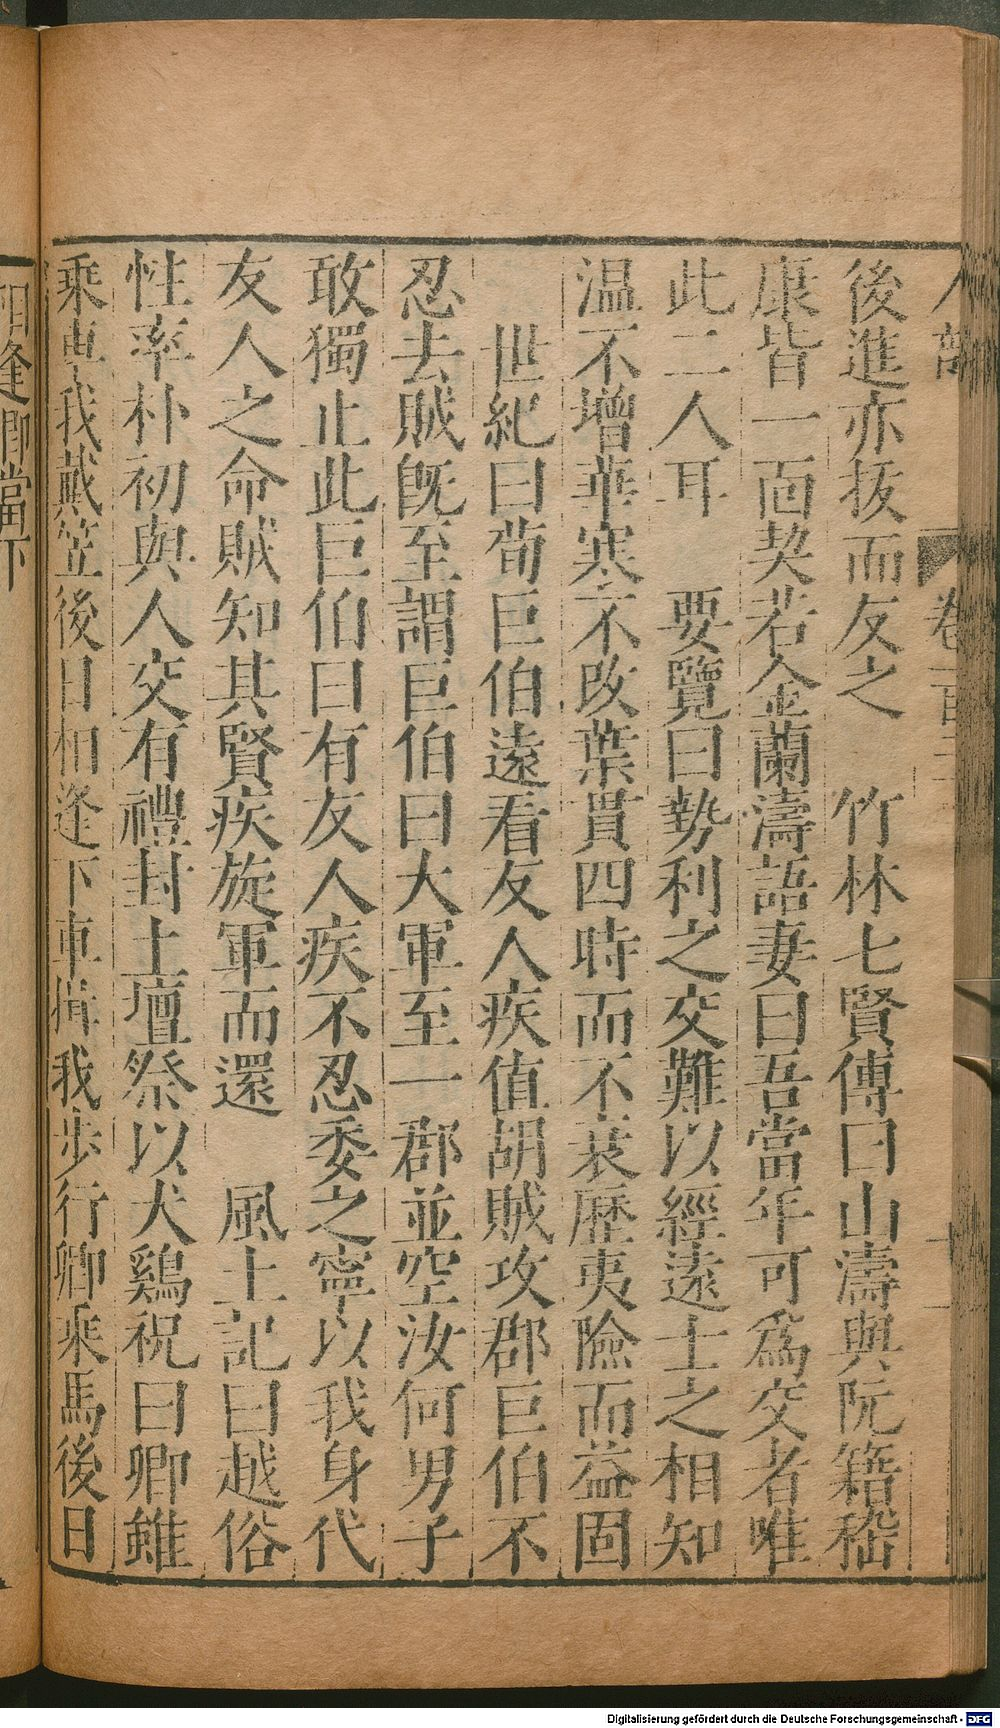 人部
卷百
後進亦拔而友之　竹林七賢傳曰山濤與阮籍嵇
康皆一面契若金蘭濤語妻曰吾當年可爲交者唯
此二人耳　要覽曰勢利之交難以經遠士之相知
温不增華寒不改葉貫四時而不衰歷夷險而益固
世紀曰荀巨伯遠看友人疾值胡賊攻郡巨伯不
忍去賊旣至謂巨伯曰大軍至一郡並空汝何男子
敢獨止此巨伯曰有友人疾不忍委之寧以我身代
友人之命賊知其賢疾旋軍而還　風土記曰越俗
性率朴初與人交有禮封土壇祭以犬鷄祝曰卿雖
乘車我戴笠後日相逢下車揖我步行卿乘馬後日
相逢卿當下
Digitalisierung gefördert durch die Deutsche Forschungsgemeinschaft - DFG